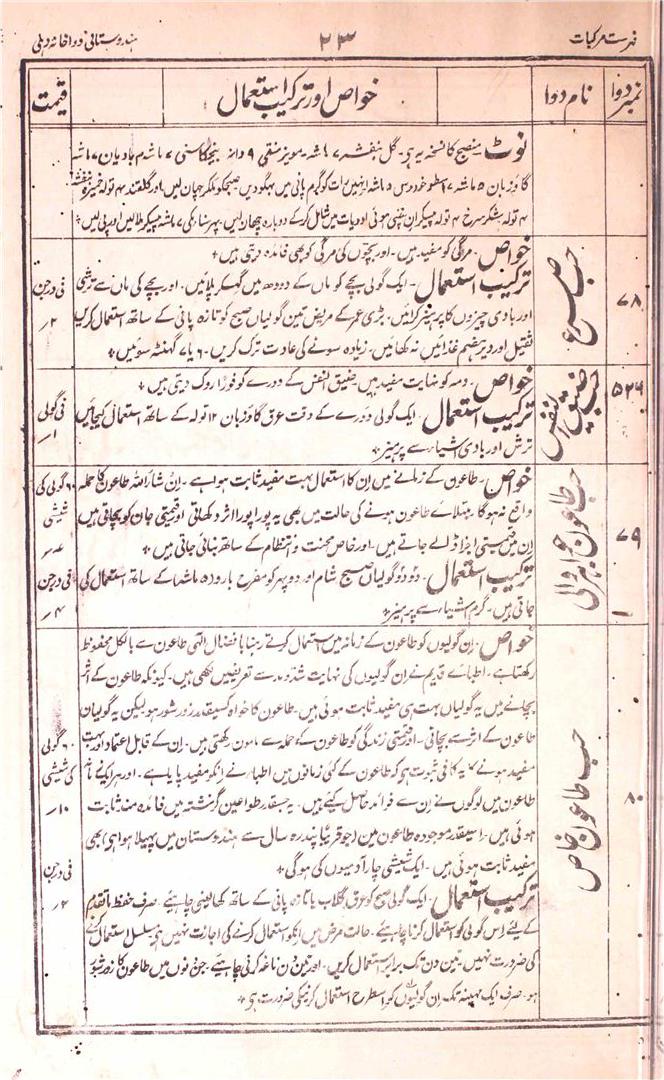 فہرست مرکبات
۲۳
ہندوستانی دواخانہ دہلی
نمبر دوا
نام دوا
خواص اور ترکیب استعمال
قیمت
نوٹ منضج کا نسخہ یہ ہی۔ گل بنفشہ ۷ ماشہ مویز منقی ۹ دانہ بیخ کاسنی ۷ ماشہ بادیان ۷ ماشہ
گاؤزبان ۵ ماشہ اسطوخودوس ۵ ماشہ رات کو گرم پانی میں بھگودیں صبحکو ملکر چھان لیں اور گلقند ۴ تولہ خمیرہ بنفشہ
۴ تولہ شکر سرخ ۴ تولہ شامل کرکے دوبارہ چھان لیں۔
۷۸
حب صرع
خواص۔ مرگی کو مفید ہیں۔ اور بچوں کی مرگی کو بھی فائدہ دیتی ہیں ۔
ترکیب استعمال۔ ایک گولی بچے کو ماں کے دودھ میں گھسکر پلائیں۔ اور بچے کی ماں سے ترشی
اور بادی چیزوں کا پرہیز کرائیں۔ بڑی عمر کے مریض تین گولیاں صبح کو تازہ پانی کے ساتھ استعمال کریں
ثقیل اور دیر ہضم غذائیں نہ کھائیں۔ زیادہ سونے کی عادت ترک کریں۔ ۶ یا ۷ گھنٹہ سوئیں ۔
فی درجن
۲؍
۵۲۶
حب ضیق النفس
خواص۔ دمہ کو نہایت مفید ہیں ضیق النفس کے دورے کو فوراً روک دیتی ہیں ۔
ترکیب استعمال۔ ایک گولی دورے کے وقت عرق گاؤزبان ۱۲ تولہ کے ساتھ استعمال کیجائیں
ترش اور بادی اشیاء سے پرہیز ۔
فی گولی
۱؍
۷۹
حب طاعون جواہر والی
خواص۔ طاعون کے زمانے میں ان کا استعمال بہت مفید ثابت ہوا ہے۔ ان شاء اللہ طاعون کا حملہ
واقع نہ ہوگا۔ مبتلائے طاعون ہونے کی حالت میں بھی یہ پورا پورا اثر دکھاتی اور قیمتی جان کو بچاتی ہیں
ان میں قیمتی اجزا ڈالے جاتے ہیں۔ اور خاص محنت و انتظام کے ساتھ بنائی جاتی ہیں ۔
ترکیب استعمال۔ دو دو گولیاں صبح شام اور دوپہر کو مفرح بارد ۵ ماشہ کے ساتھ استعمال کی
جاتی ہیں۔ گرم اشیاء سے پرہیز ۔
۶۰ گولی کی
شیشی
فی درجن
۴؍
۸۰
حب طاعون خاص
خواص۔ ان گولیوں کو طاعون کے زمانہ میں استعمال کرتے رہنا بافضال الٰہی طاعون سے بالکل محفوظ
رکھتا ہے۔ اطبائے قدیم نے ان گولیوں کی نہایت شدومد سے تعریفیں لکھی ہیں۔ کیونکہ طاعون کے اثر سے
بچانے میں یہ گولیاں بہت ہی مفید ثابت ہوئی ہیں۔ طاعون کا خواہ کسیقدر زور شور ہو لیکن یہ گولیاں
طاعون کے اثر سے بچاتی۔ اور قیمتی زندگی کو طاعون کے حملہ سے مامون رکھتی ہیں۔ ان کے قابل اعتماد اور بہت
مفید ہونے کا یہ کافی ثبوت ہی کہ طاعون کے کئی زمانوں میں اطباء نے انکو مفید پایا ہے۔ اور ہر ایک زمانہ
طاعون میں لوگوں نے ان سے فوائد حاصل کیے ہیں۔ یہ جسقدر طواعین گزشتہ میں فائدہ مند ثابت
ہوئی ہیں۔ اسیقدر موجودہ طاعون میں (جو قریباً پندرہ سال سے ہندوستان میں پھیلا ہوا ہی) بھی
مفید ثابت ہوئی ہیں۔ ایک شیشی چار آدمیوں کی ہوگی ۔
ترکیب استعمال۔ ایک گولی صبح کو عرق گلاب یا تازہ پانی کے ساتھ کھالینی چاہیے۔ صرف حفظ ماتقدم
کے لیے اس گولی کو استعمال کرنا چاہیے۔ حالت مرض میں انکو استعمال کرنے کی اجازت نہیں ہی مسلسل استعمال کرنے
کی ضرورت نہیں۔ تین دن تک برابر استعمال کریں۔ اور تین دن ناغہ کرنی چاہیے۔ جن دنوں میں طاعون کا زور شور
ہو۔ صرف ایک مہینہ تک ان گولیوں کو اسطرح استعمال کرنیکی ضرورت ہی ۔
۶۰ گولی
کی شیشی
۱۰؍
فی درجن
۲؍